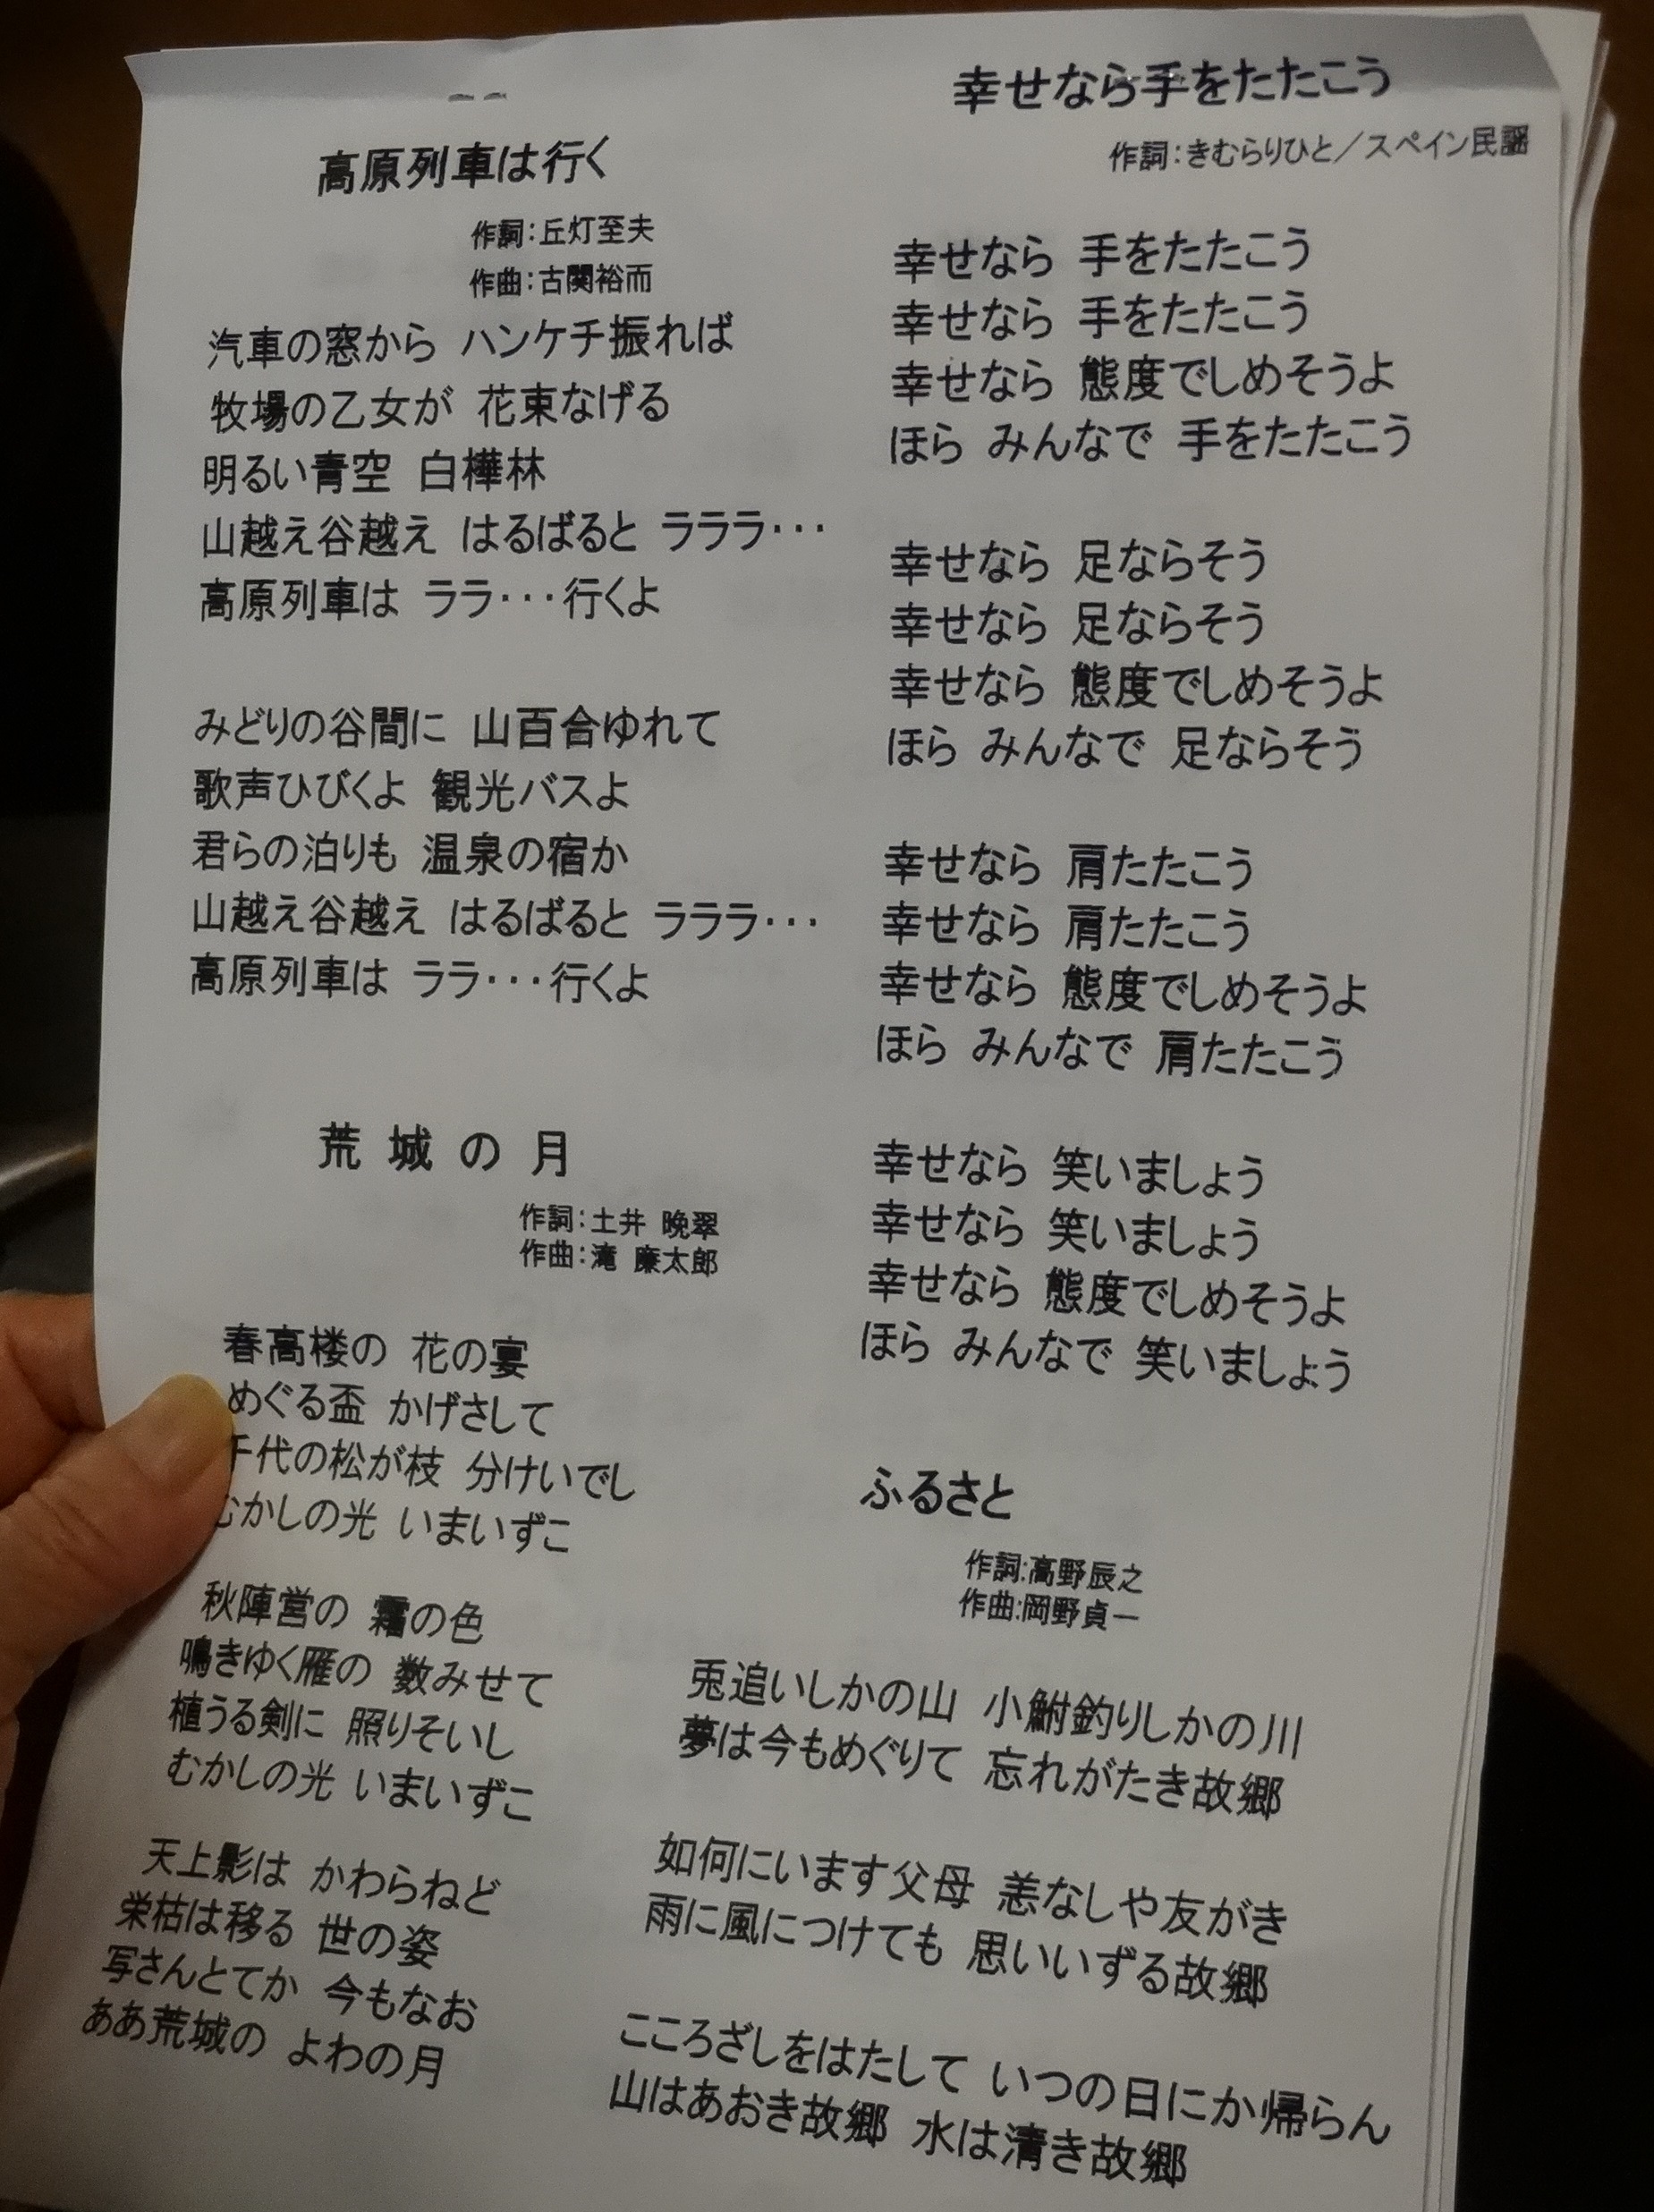 高原列車は行く
作詞：丘灯至夫
作曲：古関裕而
汽車の窓から ハンケチ振れば
牧場の乙女が 花束なげる
明るい青空 白樺林
山越え谷越え はるばると ラララ･･･
高原列車は ララ･･･行くよ
みどりの谷間に 山百合ゆれて
歌声ひびくよ 観光バスよ
君らの泊りも 温泉の宿か
山越え谷越え はるばると ラララ･･･
高原列車は ララ･･･行くよ
荒 城 の 月
作詞：土井 晩翠
作曲：滝 廉太郎
春高楼の 花の宴
めぐる盃 かげさして
千代の松が枝 分けいでし
むかしの光 いまいずこ
秋陣営の 霜の色
鳴きゆく雁の 数みせて
植うる剣に 照りそいし
むかしの光 いまいずこ
天上影は かわらねど
栄枯は移る 世の姿
写さんとてか 今もなお
ああ荒城の よわの月
幸せなら手をたたこう
作詞：きむらりひと／スペイン民謡
幸せなら 手をたたこう
幸せなら 手をたたこう
幸せなら 態度でしめそうよ
ほら みんなで 手をたたこう
幸せなら 足ならそう
幸せなら 足ならそう
幸せなら 態度でしめそうよ
ほら みんなで 足ならそう
幸せなら 肩たたこう
幸せなら 肩たたこう
幸せなら 態度でしめそうよ
ほら みんなで 肩たたこう
幸せなら 笑いましょう
幸せなら 笑いましょう
幸せなら 態度でしめそうよ
ほら みんなで 笑いましょう
ふるさと
作詞:高野辰之
作曲:岡野貞一
兎追いしかの山 小鮒釣りしかの川
夢は今もめぐりて 忘れがたき故郷
如何にいます父母 恙なしや友がき
雨に風につけても 思いいずる故郷
こころざしをはたして いつの日にか帰らん
山はあおき故郷 水は清き故郷